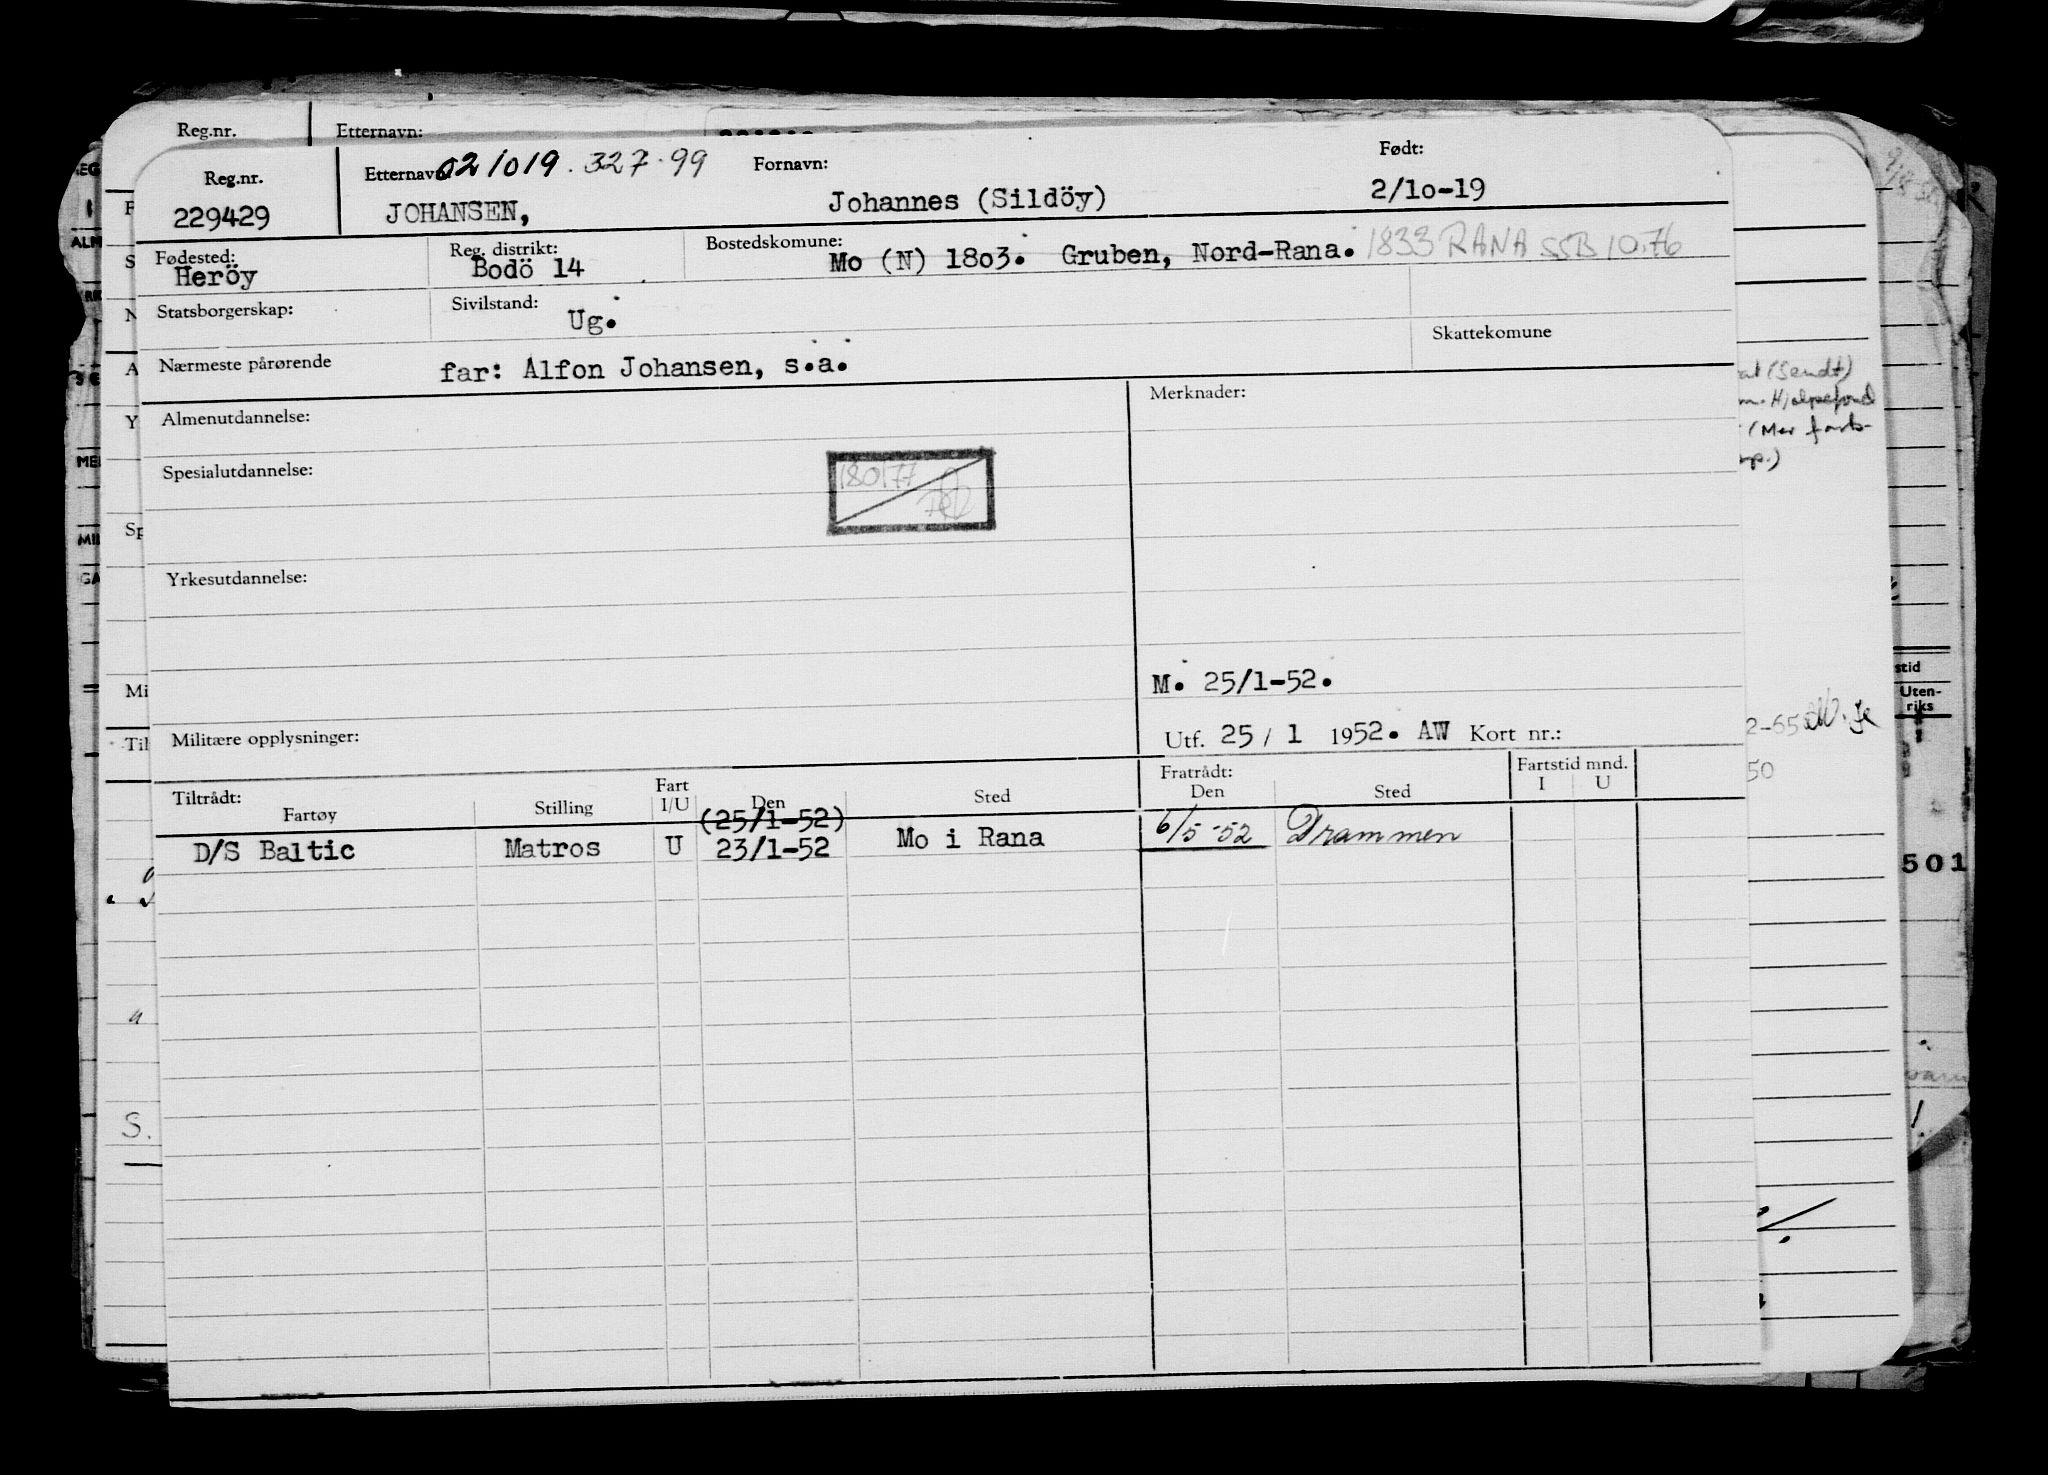 Reg.nr. Etternavn:
Reg.nr. Etternavn 021019.32799 Fornavn: Født:
229429 JOHANSEN, Johannes (Sildöy) 2/1o-19
Fødested: Reg. distrikt: Bostedskomune:
Heröy Bodö 14 Mo (N) 18o3. Gruben, Nord-Rana. 1833 RANA SSB 10.76
Statsborgerskap: Sivilstand: Ug.
Skattekomune
Nærmeste pårørende far: Alfon Johansen, s.a.
Almenutdannelse: Merknader:
(Sendt)
Hjelpefond
(Mer farts-
Spesialutdannelse: 180177
Yrkesutdannelse:
M. 25/1-52.
Militære opplysninger: Utf. 25 / 1 1952. AW Kort nr.:
Tiltrådt: Fratrådt: Fartstid mnd.
Fartøy Stilling Fart I/U Den Sted Den Sted I U
(25/1-52)
D/S Baltic Matros U 23/1-52 Mo i Rana 6/5-52 Drammen
stid
Uten-
riks
50
501
S.